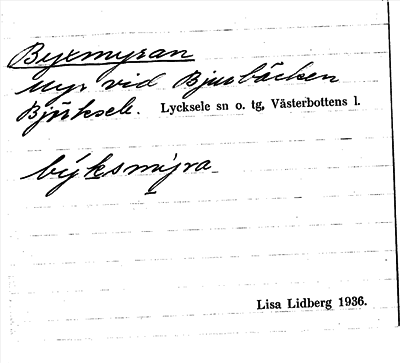 Byxmyran
myr vid Bjurbäcken
Bjurksele. Lycksele sn o. tg, Västerbottens l.
býksmỳra
Lisa Lidberg 1936.